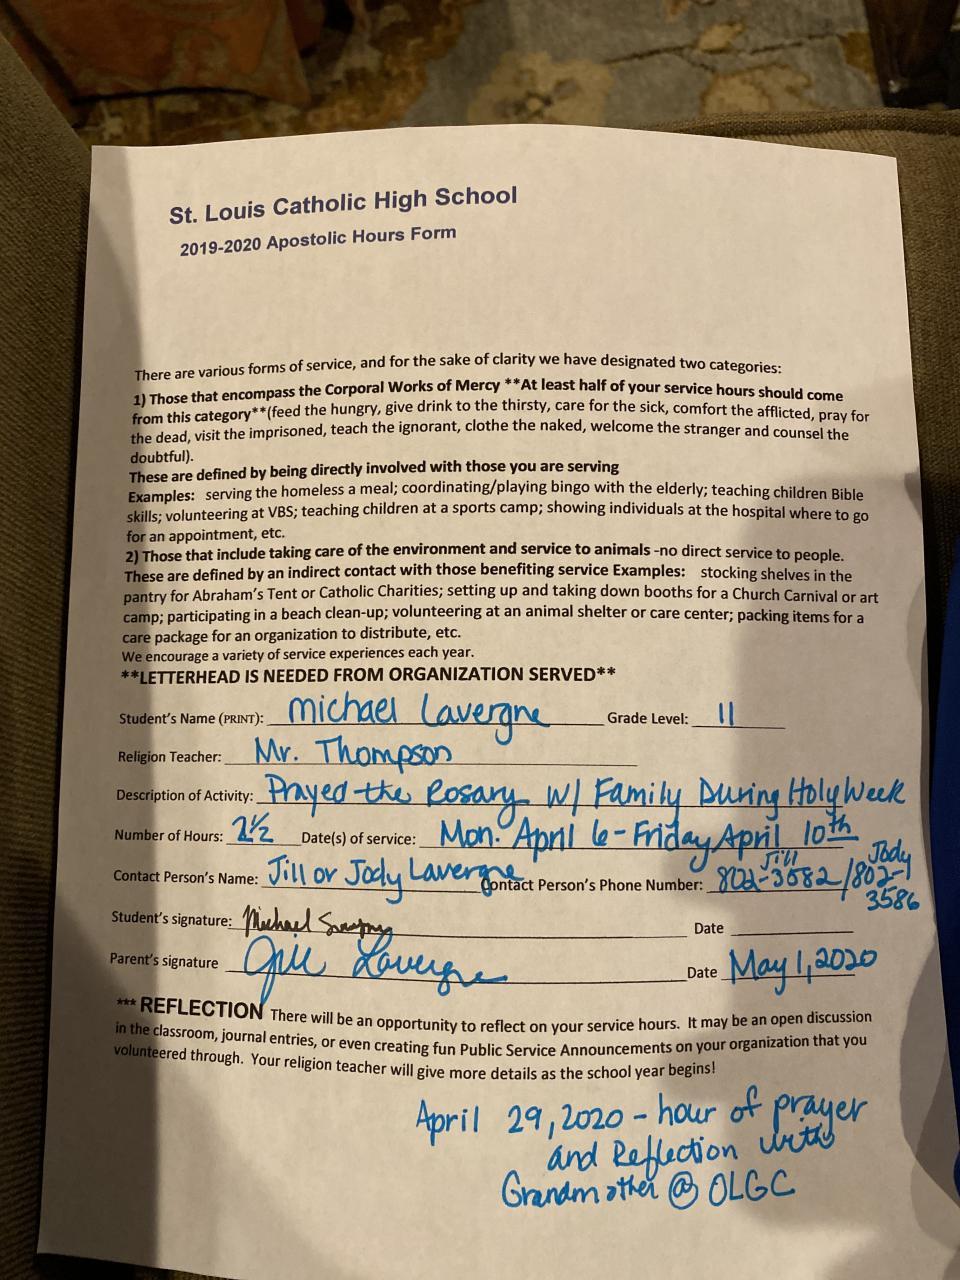 St. Louis Catholic High School
2019-2020 Apostolic Hours Form
There are various forms of service, and for the sake of clarity we have designated two categories:
1) Those that encompass the Corporal Works of Mercy **At least half of your service hours should come
from this category**(feed the hungry, give drink to the thirsty, care for the sick, comfort the afflicted, pray for
the dead, visit the imprisoned, teach the ignorant, clothe the naked, welcome the stranger and counsel the
doubtful).
These are defined by being directly involved with those you are serving
Examples: serving the homeless a meal; coordinating/playing bingo with the elderly; teaching children Bible
skills; volunteering at VBS; teaching children at a sports camp; showing individuals at the hospital where to go
for an appointment, etc.
2) Those that include taking care of the environment and service to animals -no direct service to people.
These are defined by an indirect contact with those benefiting service Examples: stocking shelves in the
pantry for Abraham's Tent or Catholic Charities; setting up and taking down booths for a Church Carnival or art
camp; participating in a beach clean-up; volunteering at an animal shelter or care center; packing items for a
care package for an organization to distribute, etc.
We encourage a variety of service experiences each year.
**LETTERHEAD IS NEEDED FROM ORGANIZATION SERVED**
Student's Name (PRINT): Michael Lavergne Grade Level: 11
Religion Teacher: Mr. Thompson
Description of Activity: Prayed the Rosary w/ Family During Holy Week
Number of Hours: 2½ Date(s) of service: Mon. April 6 - Friday April 10th
Contact Person's Name: Jill or Jody Lavergne Contact Person's Phone Number: Jill 802-3582 / Jody 802-3586
Student's signature: Michael Date
Parent's signature Jill Lavergne Date May 1, 2020
*** REFLECTION There will be an opportunity to reflect on your service hours. It may be an open discussion
in the classroom, journal entries, or even creating fun Public Service Announcements on your organization that you
volunteered through. Your religion teacher will give more details as the school year begins!
April 29, 2020 - hour of prayer
and Reflection with
Grandmother @ OLGC